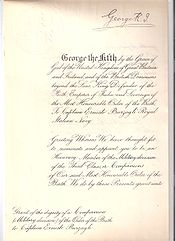 George R. I.
George the Fifth by the Grace of
God of the United Kingdom of Great Britain
and Ireland and of the British Dominions
beyond the Seas King, Defender of the
Faith, Emperor of India and Sovereign of
the Most Honourable Order of the Bath,
To Captain Ernesto Burzagli Royal
Italian Navy
Greeting Whereas We have thought fit
to nominate and appoint you to be an
Honorary Member of the Military division
of the Third Class or Companions
of Our said Most Honourable Order of the
Bath We do by these Presents grant unto
Grant of the dignity of a Companion
(Military division) of the Order of the Bath
to Captain Ernesto Burzagli